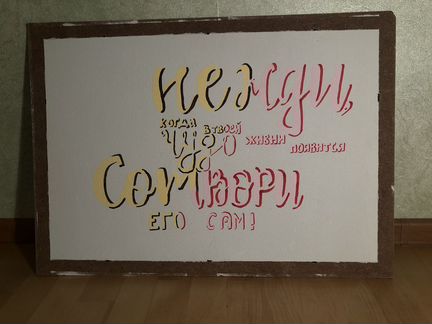 Не жди,
КОГДА В ТВОЕЙ
ЖИЗНИ ПОЯВИТСЯ
Чудо
Сотвори
ЕГО САМ!